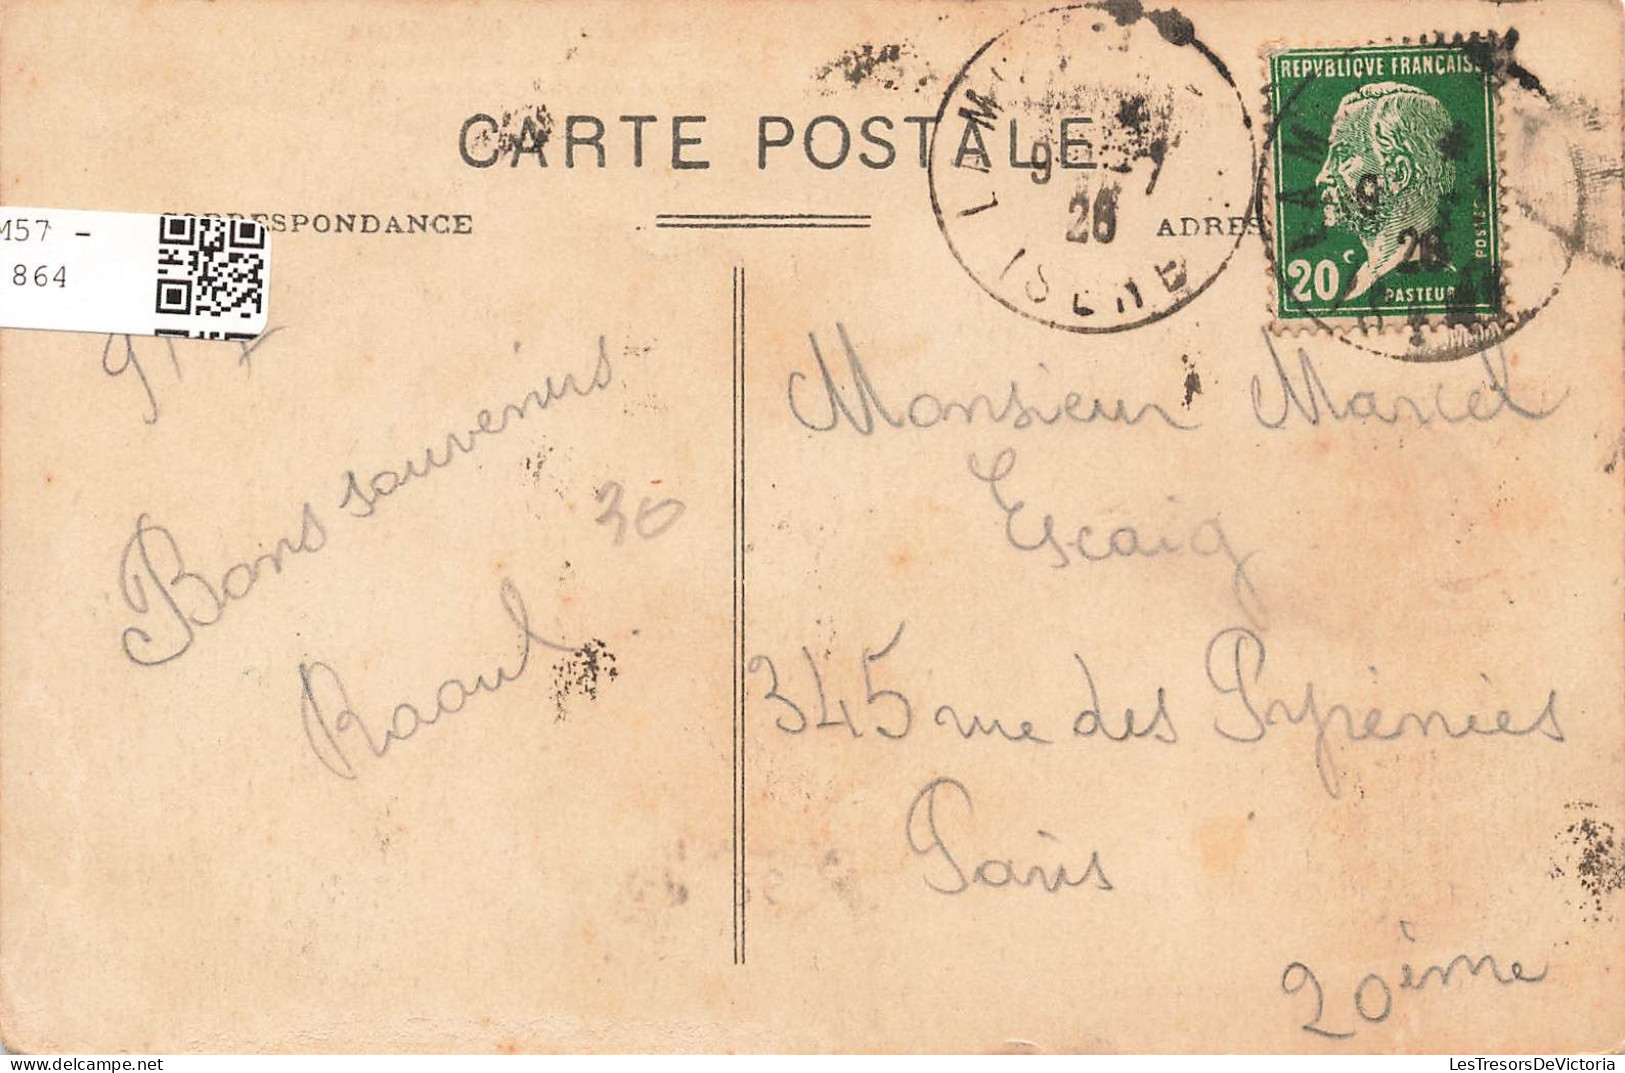 CARTE POSTALE
CORRESPONDANCE
ADRES
M57 -
864
LAM
9 7
26
ISERE
REPVBLIQVE FRANÇAISE
LAM
20c
POSTES
PASTEUR
9
26
9 7
Bons souvenirs
30
Raoul
Monsieur Marcel
Escaig
345 rue des Pyrénées
Paris
20ème
LesTresorsDeVictoria